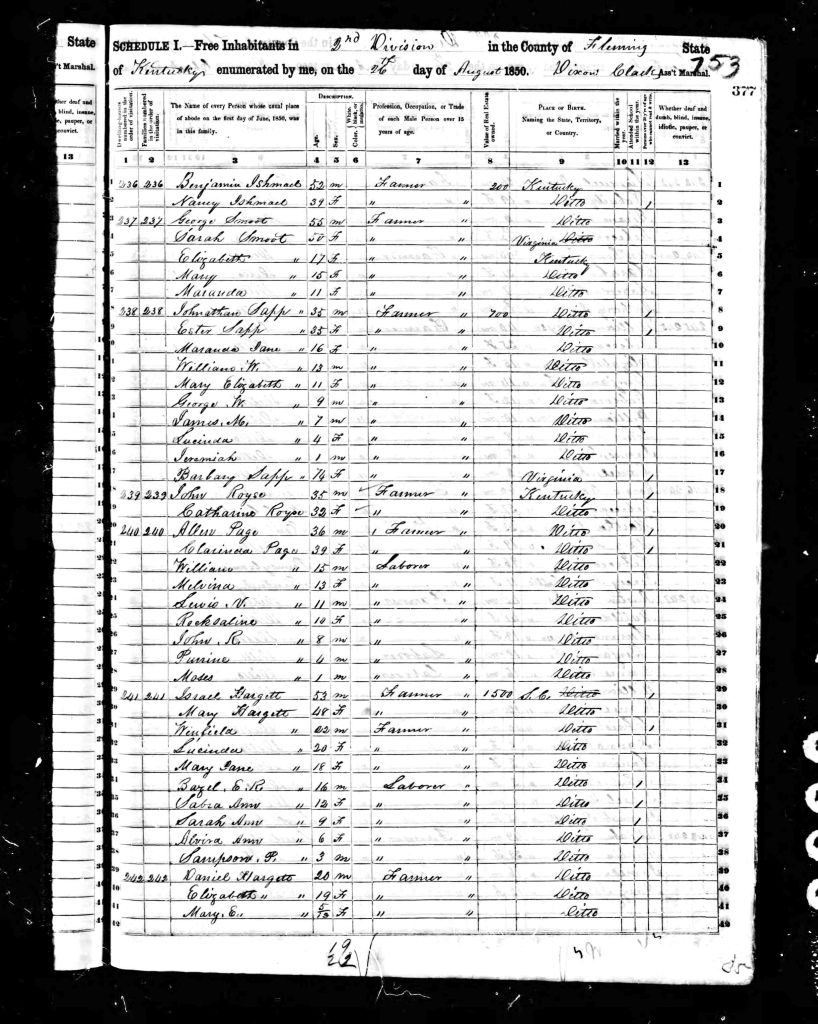 State
't Marshal.
ther deaf and
, blind, insane,
, pauper, or
convict.
13
SCHEDULE I.—Free Inhabitants in 2nd Division in the County of Fleming State
of Kentucky enumerated by me, on the 26th day of August 1850. Dixon Clack Ass't Marshal.
753
377
Dwelling-houses numbered in the order of visitation.
Families numbered in the order of visitation.
The Name of every Person whose usual place of abode on the first day of June, 1850, was in this family.
DESCRIPTION.
Age.
Sex.
Color, White, black, or mulatto.
Profession, Occupation, or Trade of each Male Person over 15 years of age.
Value of Real Estate owned.
PLACE OF BIRTH. Naming the State, Territory, or Country.
Married within the year.
Attended School within the year.
Whether deaf and dumb, blind, insane, idiotic, pauper, or convict.
1 2 3 4 5 6 7 8 9 10 11 12 13
1 236 236 Benjamin Ishmael 52 m Farmer 200 Kentucky 1
2 Nancy Ishmael 39 F " " Ditto 1 2
3 237 237 George Smoot 55 m Farmer " Ditto 3
4 Sarah Smoot 50 F " " Virginia Ditto 4
5 Elizabeth " 17 F " " Kentucky 5
6 Mary " 15 F " " Ditto 6
7 Maranda " 11 F " " Ditto 7
8 238 238 Johnathan Sapp " 35 m Farmer " 700 Ditto 1 8
9 Ester Sapp " 35 F " " Ditto 1 9
10 Maranda Jane " 16 F " " Ditto 10
11 William W. " 13 m " " Ditto 11
12 Mary Elizabeth " 11 F " " Ditto 12
13 George W. " 9 m " " Ditto 13
14 James M. " 7 m " " Ditto 14
15 Lucinda " 4 F " " Ditto 15
16 Jeremiah " 1 m " " Ditto 16
17 Barbary Sapp " 74 F " " Virginia 1 17
18 239 239 John Royse 35 m Farmer " Kentucky 1 18
19 Catharine Royse 32 F " " Ditto 19
20 240 240 Allen Page 36 m Farmer " Ditto 1 20
21 Clarinda Page 39 F " " Ditto 1 21
22 William " 15 m Laborer " Ditto 22
23 Melvina " 13 F " " Ditto 23
24 Lewis V. " 11 m " " Ditto 24
25 Rocksaline " 10 F " " Ditto 25
26 John R. " 8 m " " Ditto 26
27 Purrine " 4 m " " Ditto 27
28 Moses " 1 m " " Ditto 28
29 241 241 Israel Hargett 53 m Farmer " 1500 S.C. Ditto 1 29
30 Mary Hargett 48 F " " Ditto 30
31 Winfield " 22 m Farmer " Ditto 1 31
32 Lucinda " 20 F " " Ditto 32
33 Mary Jane " 18 F " " Ditto 33
34 Bazel E. R. " 16 m Laborer " Ditto 1 34
35 Sabra Ann " 12 F " " Ditto 1 35
36 Sarah Ann " 9 F " " Ditto 1 36
37 Alvira Ann " 6 F " " Ditto 1 37
38 Sampson P. " 3 m " " Ditto 38
39 242 242 Daniel Hargett 20 m Farmer " Ditto 39
40 Elizabeth " " 19 F " " Ditto 40
41 Mary E. " 5/12 F " " Ditto 41
42 42